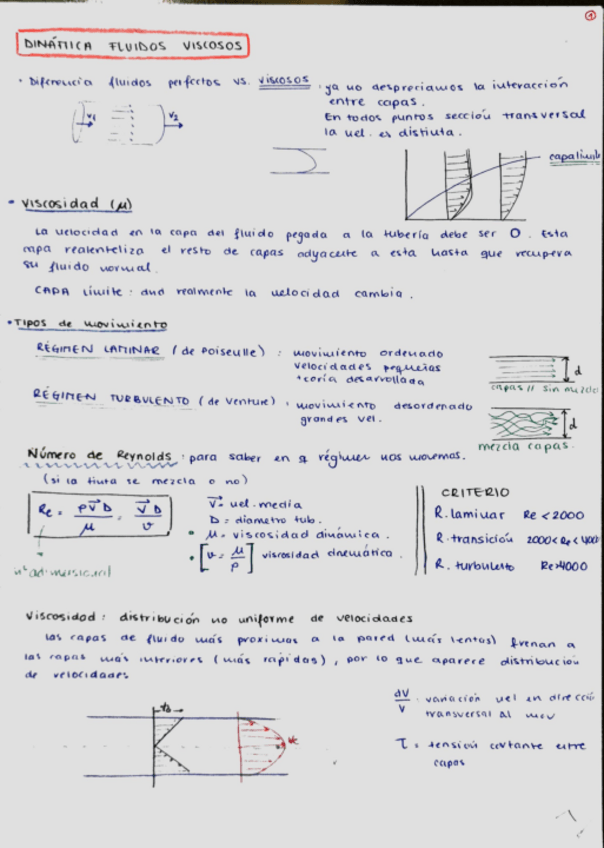 1
DINÁMICA FLUIDOS VISCOSOS
• Diferencia fluidos perfectos vs. viscosos. ya no despreciamos la interacción
entre capas.
En todos puntos sección transversal
la vel. es distinta.
V1 V2
capa límite
• Viscosidad (μ)
La velocidad en la capa del fluido pegada a la tubería debe ser 0. Esta
capa realenteliza el resto de capas adyacente a esta hasta que recupera
su fluido normal.
CAPA límite: dnd realmente la velocidad cambia.
• Tipos de movimiento
RÉGIMEN LAMINAR (de Poiseulle): movimiento ordenado
velocidades pequeñas
teoría desarrollada
d
capas // sin mezcla
RÉGIMEN TURBULENTO (de Venture): movimiento desordenado
grandes vel.
d
mezcla capas.
Número de Reynolds: para saber en q régimen nos movemos.
(si la tinta se mezcla o no)
Re = ρV̄D/μ = V̄D/ν
nº adimensional
V̄ = vel. media
D = diámetro tub.
• μ = viscosidad dinámica.
• [ν = μ/ρ] viscosidad cinemática.
CRITERIO
R. laminar Re < 2000
R. transición 2000 < Re < 4000
R. turbulento Re > 4000
Viscosidad: distribución no uniforme de velocidades
Las capas de fluido más proximas a la pared (más lentas) frenan a
las capas más interiores (más rapidas), por lo que aparece distribución
de velocidades
dV/V : variación vel en dirección
transversal al mov
τ = tensión cortante entre
capas